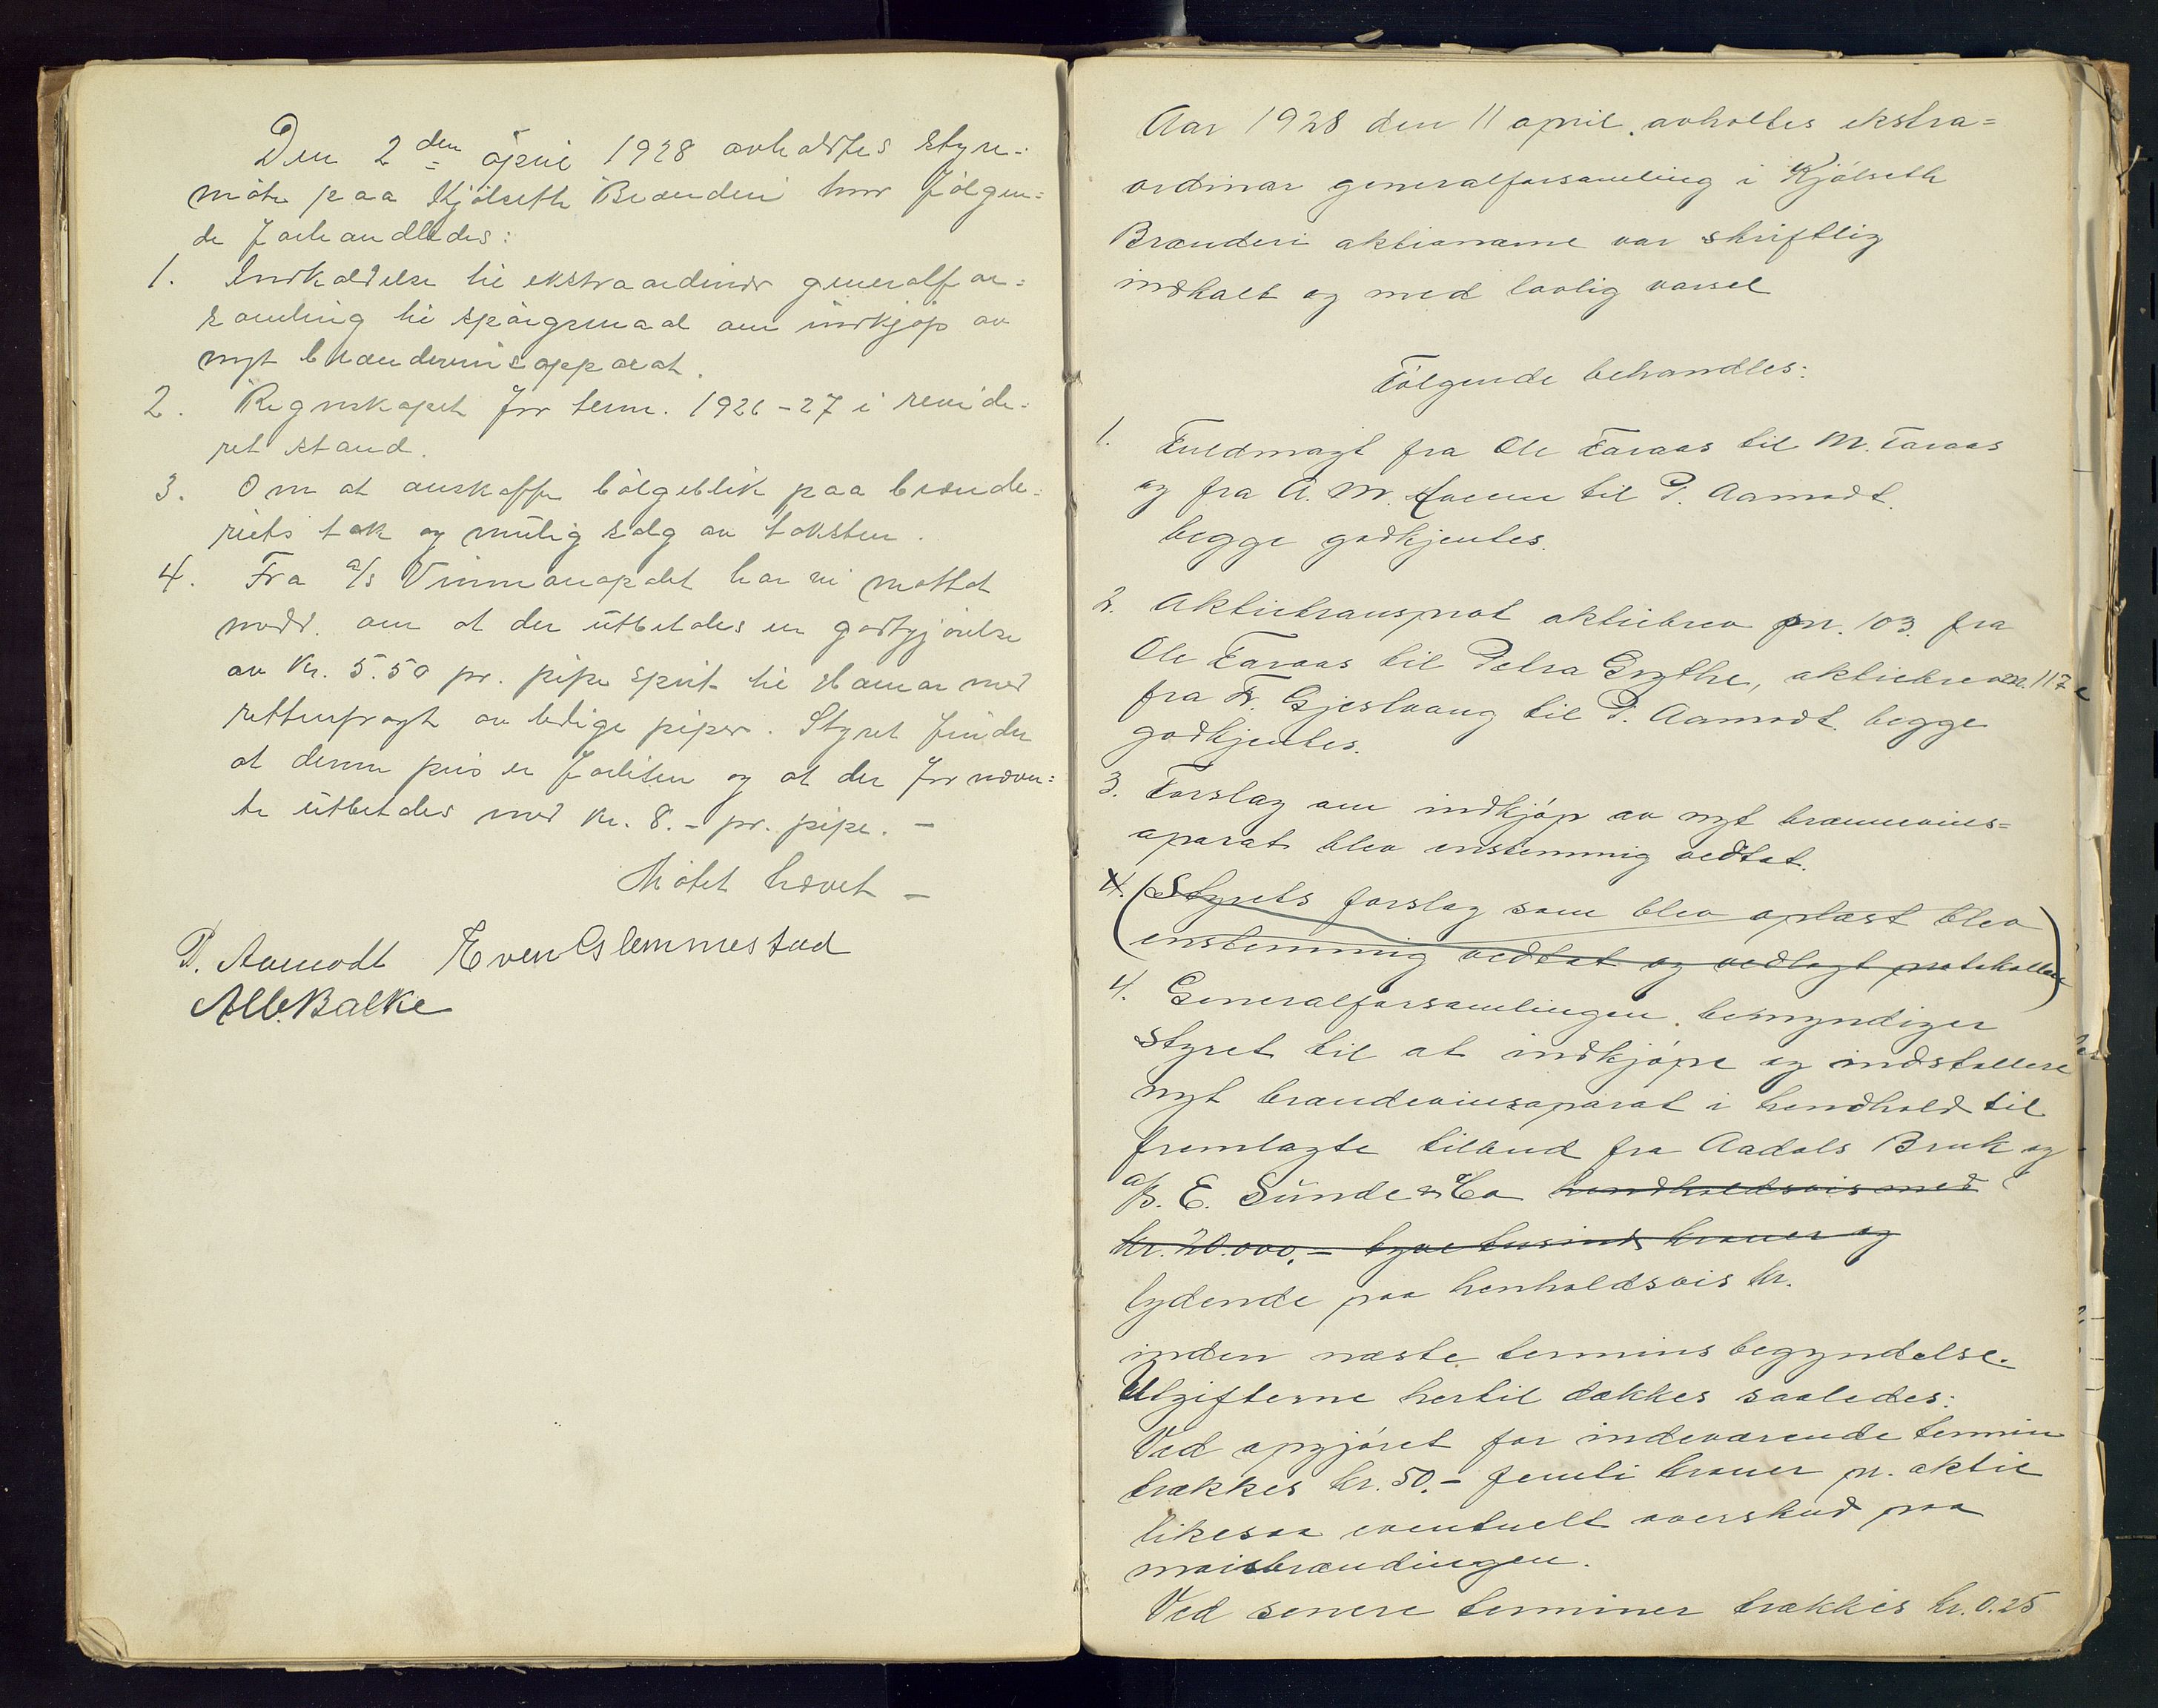 Den 2den april 1928 avholdtes styre-
möte paa Kjölseth Brænderi hvor fölgen-
de forhandledes:
1. Indkaldelse til ekstraordinær generalfor-
samling til spörgsmaal om indkjöp av
nyt brændevinsapparat.
2. Regnskapet for term. 1926-27 i revide-
ret stand.
3. Om at anskaffe bölgeblik paa brænde-
riets tak og mulig salg av taksten.
4. Fra a/s Vinmonopolet har vi mottat
medd. om at der utbetales en godtgjörelse
av Kr. 5.50 pr. pipe sprit til Hamar med
returfragt av ledige piper. Styret finder
at denne pris er forliten og at der for nævn-
te utbetales med kr. 8.- pr. pipe. -
Mötet hævet -
P. Aamodt Even Glemmestad
Alb. Balke
Aar 1928 den 11 april avholtes ekstra=
ordinær generalforsamling i Kjölseth
Brænderi aktionærne var skriftlig
indkalt og med lovlig varsel
Fölgende behandles:
1. Fuldmagt fra Ole Faraas til M. Faraas
og fra A. M. til P. Aamodt.
begge godkjentes.
2. Aktietransprot aktiebrev nr. 103. fra
Ole Faraas til Petra Grythe, aktiebrev nr. 117
fra Fr. Gjeslvang til P. Aamodt. begge
godkjentes.
3. Forslag om indkjöp av nyt brænnevins=
aparat blev enstemmig vedtat.
4. (Styrets forslag som blev oplæst blev
enstemmig vedtat og vedlagt protokollen)
4. Generalforsamlingen bemyndiger
Styret til at indkjöpe og indstallere
nyt brændevinsaparat i hendhold til
fremlagte tilbud fra Aadals Bruk og
a/s. E. Sunde & Co hendholdsvis med
kr. 20.000.- tyve tusind kroner og
lydende paa henholdsvis kr.
inden næste termins begyndelse.
Utgifterne hertil dækkes saaledes:
Ved opgjöret for indeværende termin
trækkes kr. 50.- femti kroner pr. aktie
likesaa eventuelt overskud paa
maisbrændingen.
Ved senere terminer trækkes kr. 0.25